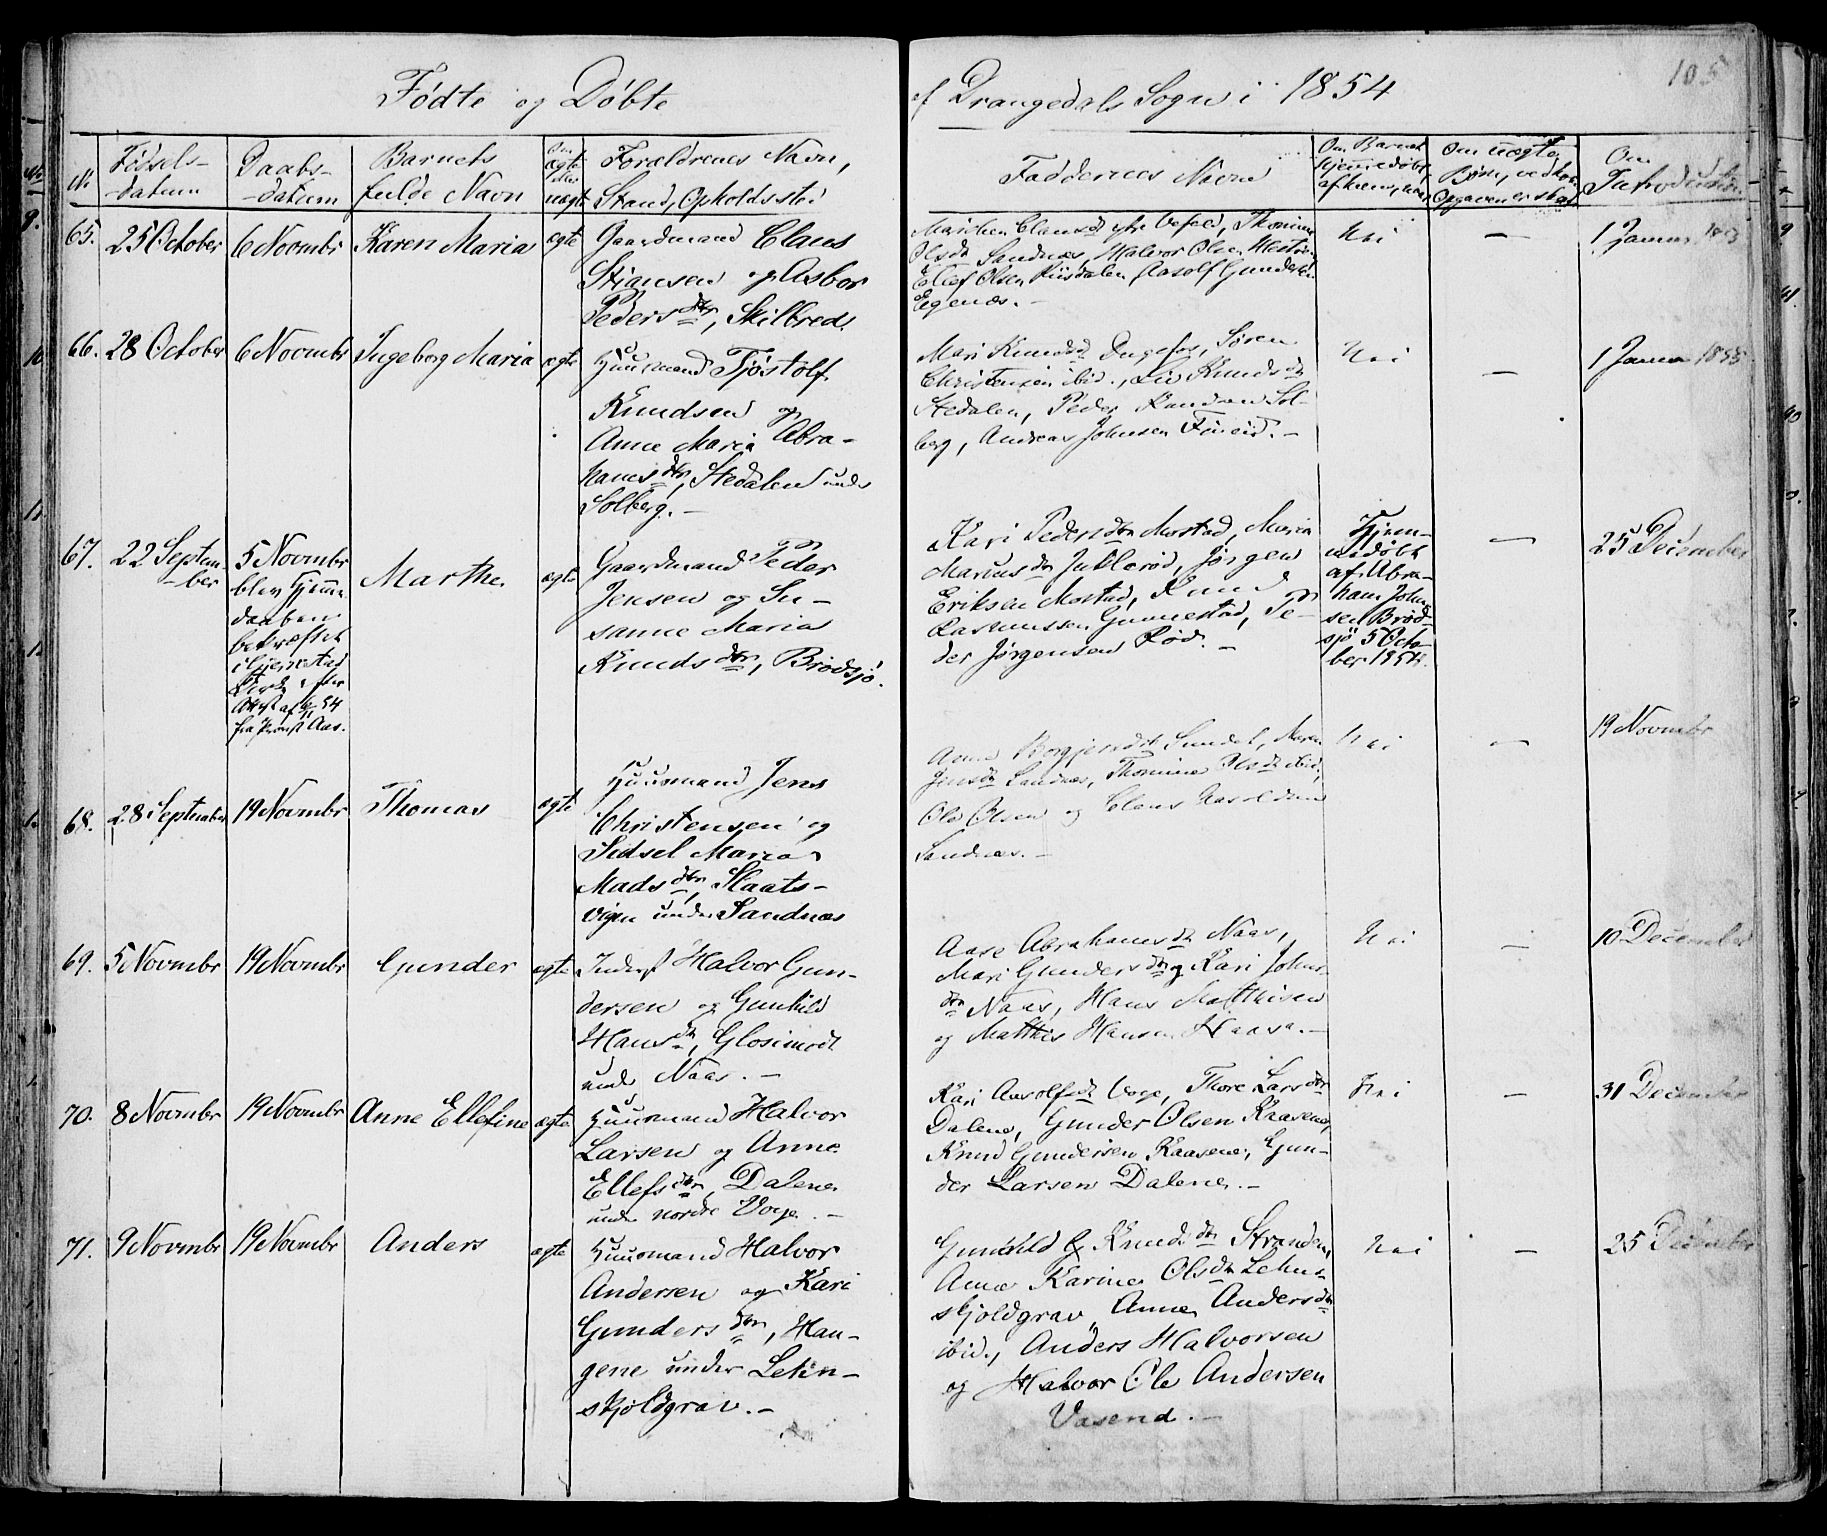 Fødte og Døbte
af Drangedals Sogn i 1854
105
No
Fødsels-
datum
Daabs-
datum
Barnets
fulde Navn
Om
ægte
eller
uægte
Forældrenes Navn,
Stand, Opholdssted
Faddernes Navn
Om Barnet
hjemmedøbt,
af hvem, naar
Om uægte
Børn, ved hvem
Opgaven er skeet
Om
Introduktion
65.
25 October
6 Novmbr
Karen Maria
ægte
Gaardmand Claus
Stiansen og Asbor
Pedersdtr, Skilbred.
Clausdt ytre Thomine
Olsdt Sandnæs, Halvor Olsen
Ellef Olsen Aasolf Gundersen
Egenæs.-
Nei
—
1 Januar
66.
28 October
6 Novmbr
Ingeborg Maria
ægte
Huusmand Tjöstolf
Knudsen og
Anne Maria Abra-
hamsdtr, Stedalen under
Solberg.-
Mari Knudsdt Søren
Christensen ibid., Liv Knudsdt
Stedalen, Peder Sol-
berg, Andreas Johnsen
Nei
—
1 Januar 1855
67.
22 Septem-
-ber
5 Novmbr
blev Hjemme
daaben
bekræftet
i Gjerrestad
Kirke efter
Attest af 6/11 54
fra Provst Aas.
Marthe
ægte
Gaardmand Peder
Jensen og Su-
sanne Maria
Knudsdtr, Brødsjø.
Kari Pedersdtr Mostad, Maria
Mariusdtr Jørgen
Eriksen Mostad, Knud
Rasmussen Gunnestad, Pe-
der Jørgensen Rød.-
Hjem-
medøbt
af Abra-
ham John-
sen Brød-
sjö 5 Octo-
ber 1854.
—
25 December
68.
28 September
19 Novmbr
Thomas
ægte
Huusmand Jens
Christensen og
Sidsel Maria
Madsdtr, Slaats-
vigen under Sandnæs
Anne Sundal, Maren
Jensdt Sandnæs, Thomine Olsdt ibid,
Ole Olsen og Claus
Sandnæs.-
Nei
—
19 Novmbr
69.
5 Novmbr
19 Novmbr
Gunder
ægte
Inderst Halvor Gun-
dersen og Gunhild
Hansdt, Glosimodt
under Naas.-
Aase Abrahamsdt Naas,
Mari Gundersdtr og Kari Johns-
dtr Naas, Hans Matthisen
og Matthis Hansen
Nei
—
10 December
70.
8 Novmbr
19 Novmbr
Anne Ellefine
ægte
Huusmand Halvor
Larsen og Anne
Ellefsdtr, Dalene
under nordre Voje.-
Kari Aasolfsdt Voje, Thore Larsdtr
Dalene, Gunder Olsen Kaasene,
Knud Gundersen Kaasene, Gun-
der Larsen Dalene.-
Nei
—
31 December
71.
9 Novmbr
19 Novmbr
Anders
ægte
Huusmand Halvor
Andersen og Kari
Gundersdtr, Hau-
gene under Lehn-
skjoldgrav.-
Gunhild Knudsdtr Stranden,
Anne Karine Olsdtr Lehn-
skjoldgrav, Anne Andersdtr
ibid., Anders Halvorsen
og Halvor Ole Andersen
Vasend.-
Nei
—
25 December